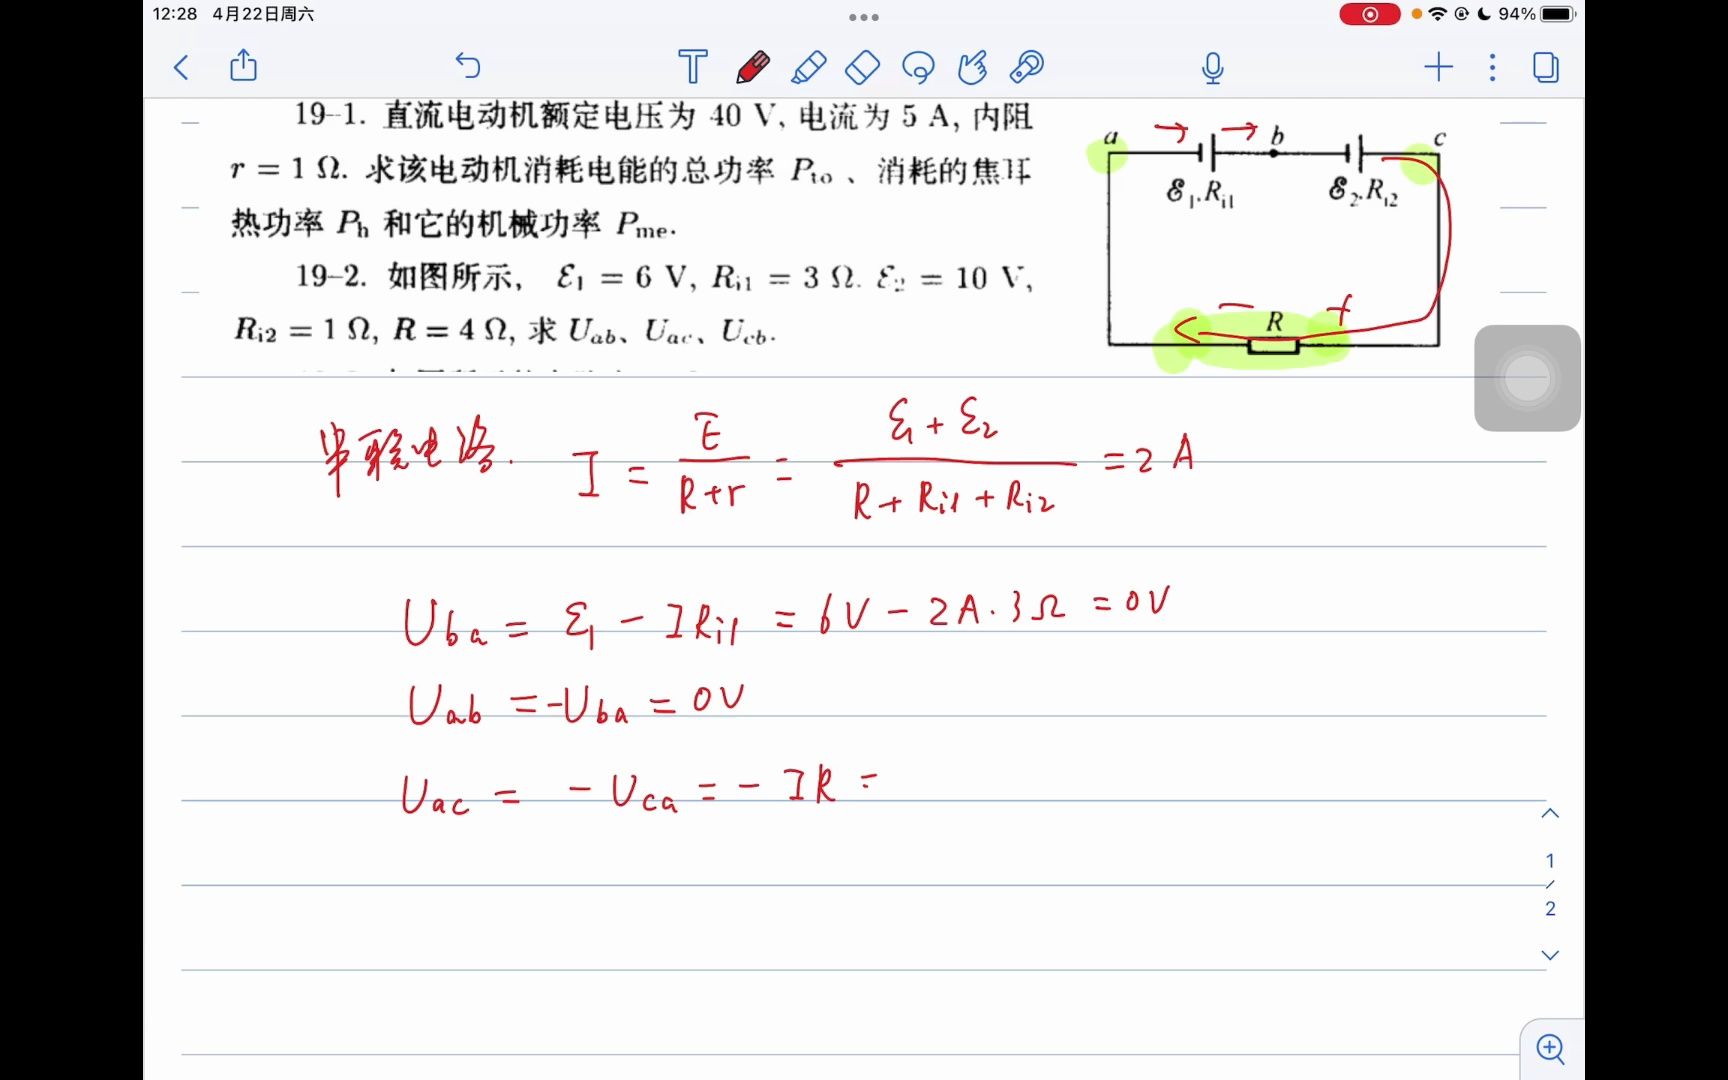 12:28 4月22日周六
94%
19-1. 直流电动机额定电压为 40 V, 电流为 5 A, 内阻
r = 1 Ω. 求该电动机消耗电能的总功率 Pto 、消耗的焦耳
热功率 Ph 和它的机械功率 Pme.
19-2. 如图所示, ℰ1 = 6 V, Ri1 = 3 Ω. ℰ2 = 10 V,
Ri2 = 1 Ω, R = 4 Ω, 求 Uab、Uac、Ucb.
a b c
ℰ1.Ri1 ℰ2.Ri2
− R +
串联电路. I = E/(R+r) = (ℰ1 + ℰ2)/(R + Ri1 + Ri2) = 2 A
Uba = ℰ1 − IRi1 = 6V − 2A·3Ω = 0V
Uab = -Uba = 0V
Uac = − Uca = − IR =
1/2